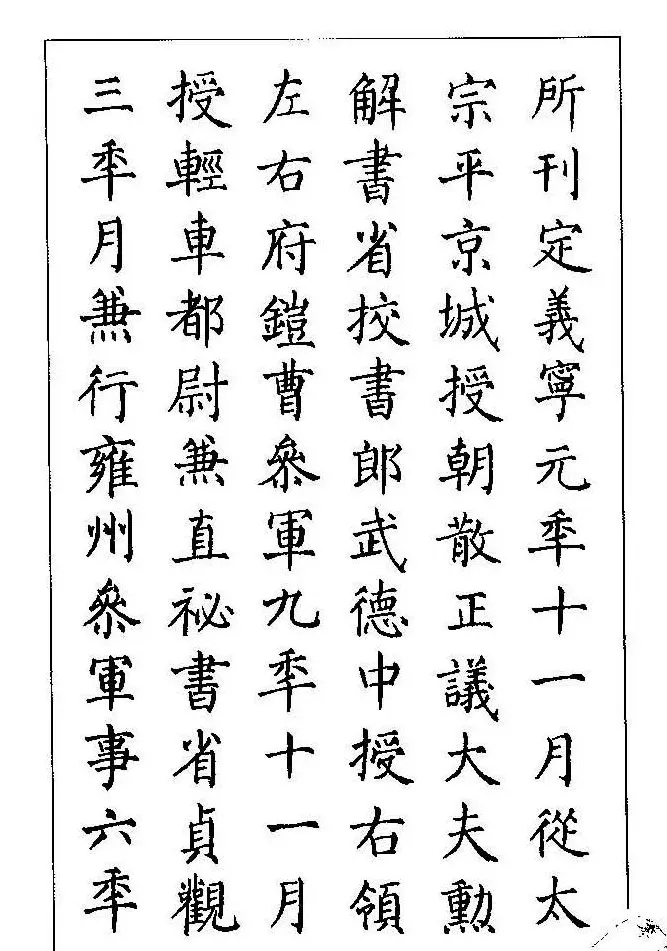 所刊定義寧元秊十一月從太
宗平京城授朝散正議大夫勳
解書省挍書郎武德中授右領
左右府鎧曹叅軍九秊十一月
授輕車都尉兼直祕書省貞觀
三秊月兼行雍州叅軍事六秊